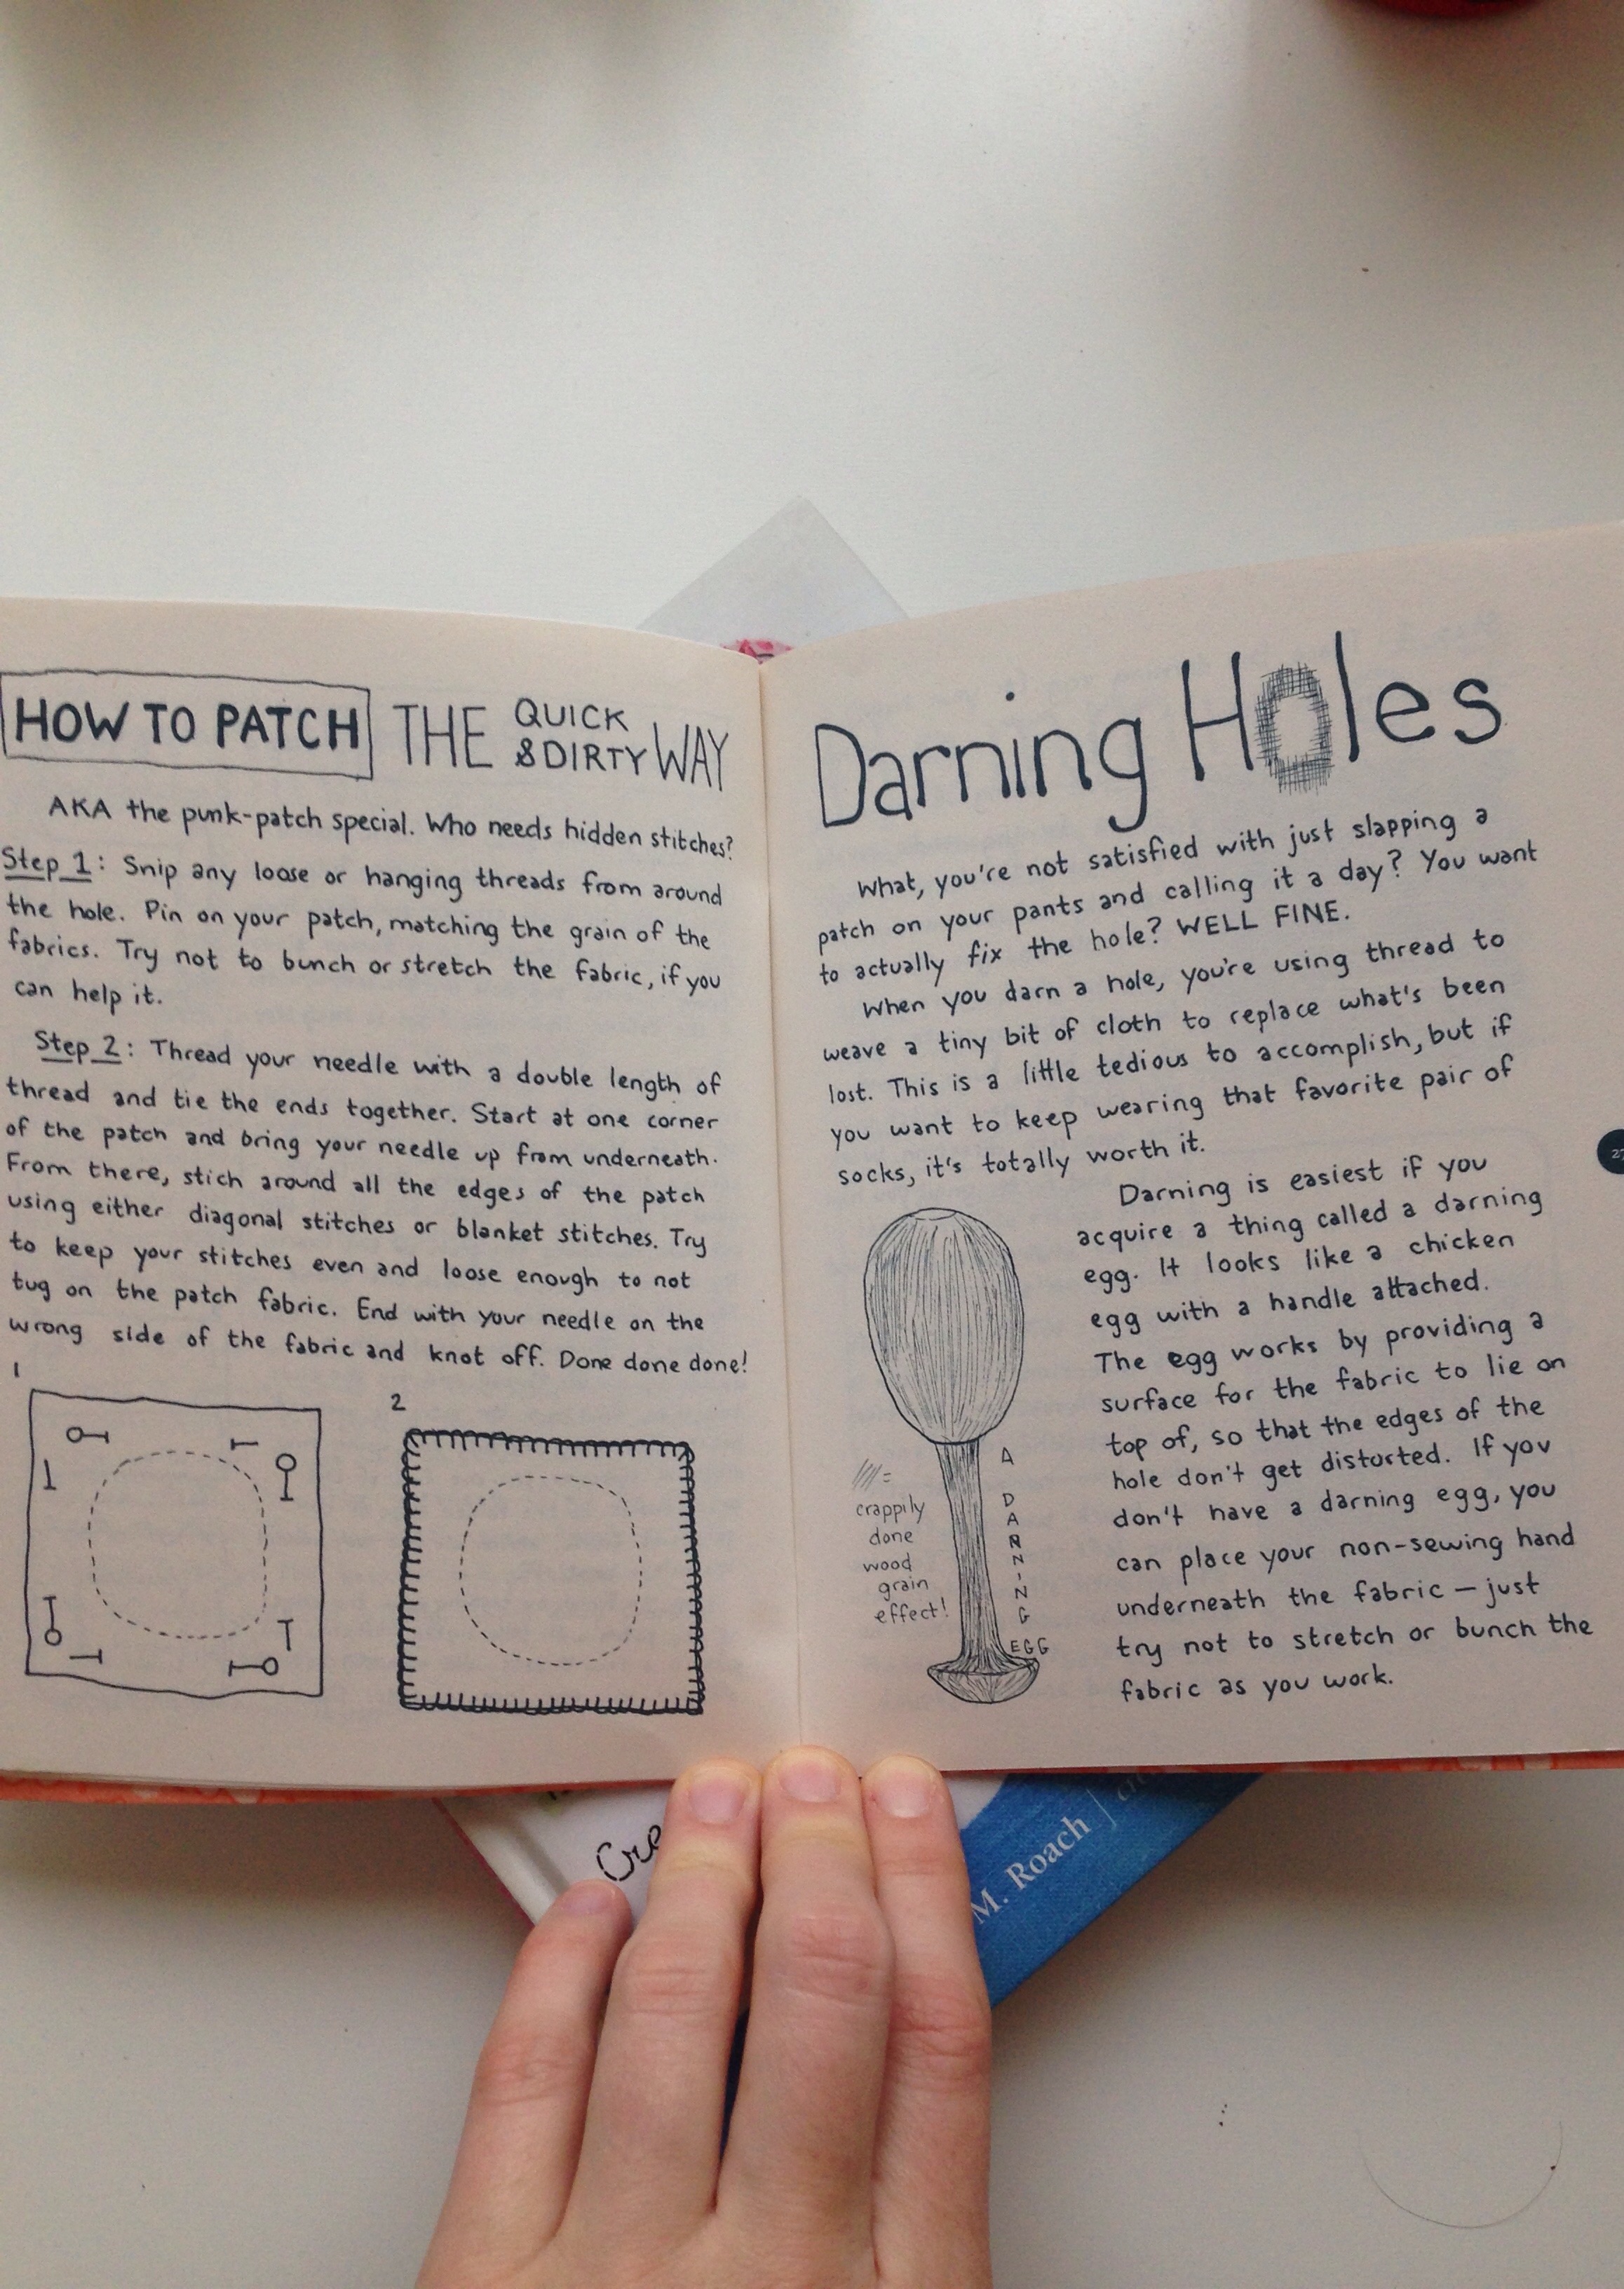 HOW TO PATCH THE QUICK & DIRTY WAY
AKA the punk-patch special. Who needs hidden stitches?
Step 1: Snip any loose or hanging threads from around
the hole. Pin on your patch, matching the grain of the
fabrics. Try not to bunch or stretch the fabric, if you
can help it.
Step 2: Thread your needle with a double length of
thread and tie the ends together. Start at one corner
of the patch and bring your needle up from underneath.
From there, stich around all the edges of the patch
using either diagonal stitches or blanket stitches. Try
to keep your stitches even and loose enough to not
tug on the patch fabric. End with your needle on the
wrong side of the fabric and knot off. Done done done!
1
2
Darning Holes
What, you're not satisfied with just slapping a
patch on your pants and calling it a day? You want
to actually fix the hole? WELL FINE.
When you darn a hole, you're using thread to
weave a tiny bit of cloth to replace what's been
lost. This is a little tedious to accomplish, but if
you want to keep wearing that favorite pair of
socks, it's totally worth it.
Darning is easiest if you
acquire a thing called a darning
egg. It looks like a chicken
egg with a handle attached.
The egg works by providing a
surface for the fabric to lie on
top of, so that the edges of the
hole don't get distorted. If you
don't have a darning egg, you
can place your non-sewing hand
underneath the fabric — just
try not to stretch or bunch the
fabric as you work.
=
crappily
done
wood
grain
effect!
A DARNING EGG
M. Roach